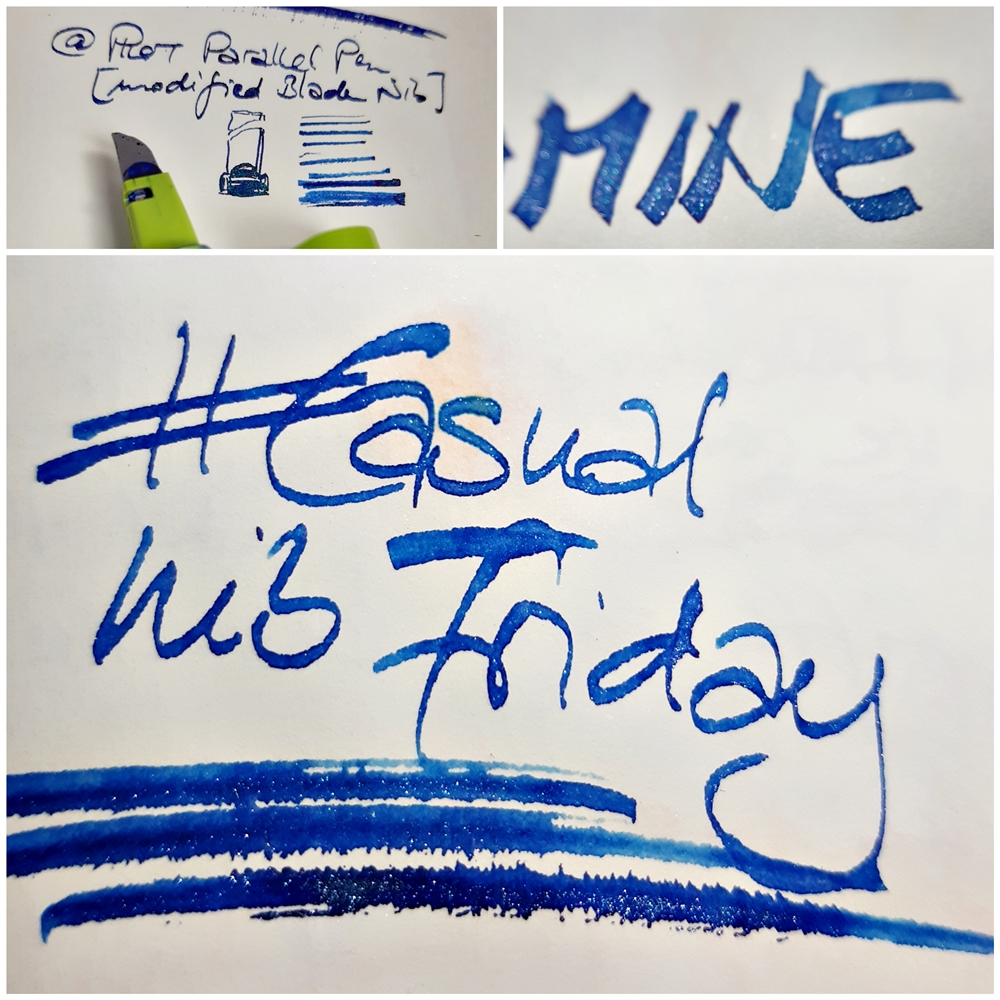 @ Pilot Parallel Pen
[modified Blade Nib]
MINE
#Casual
nib Friday